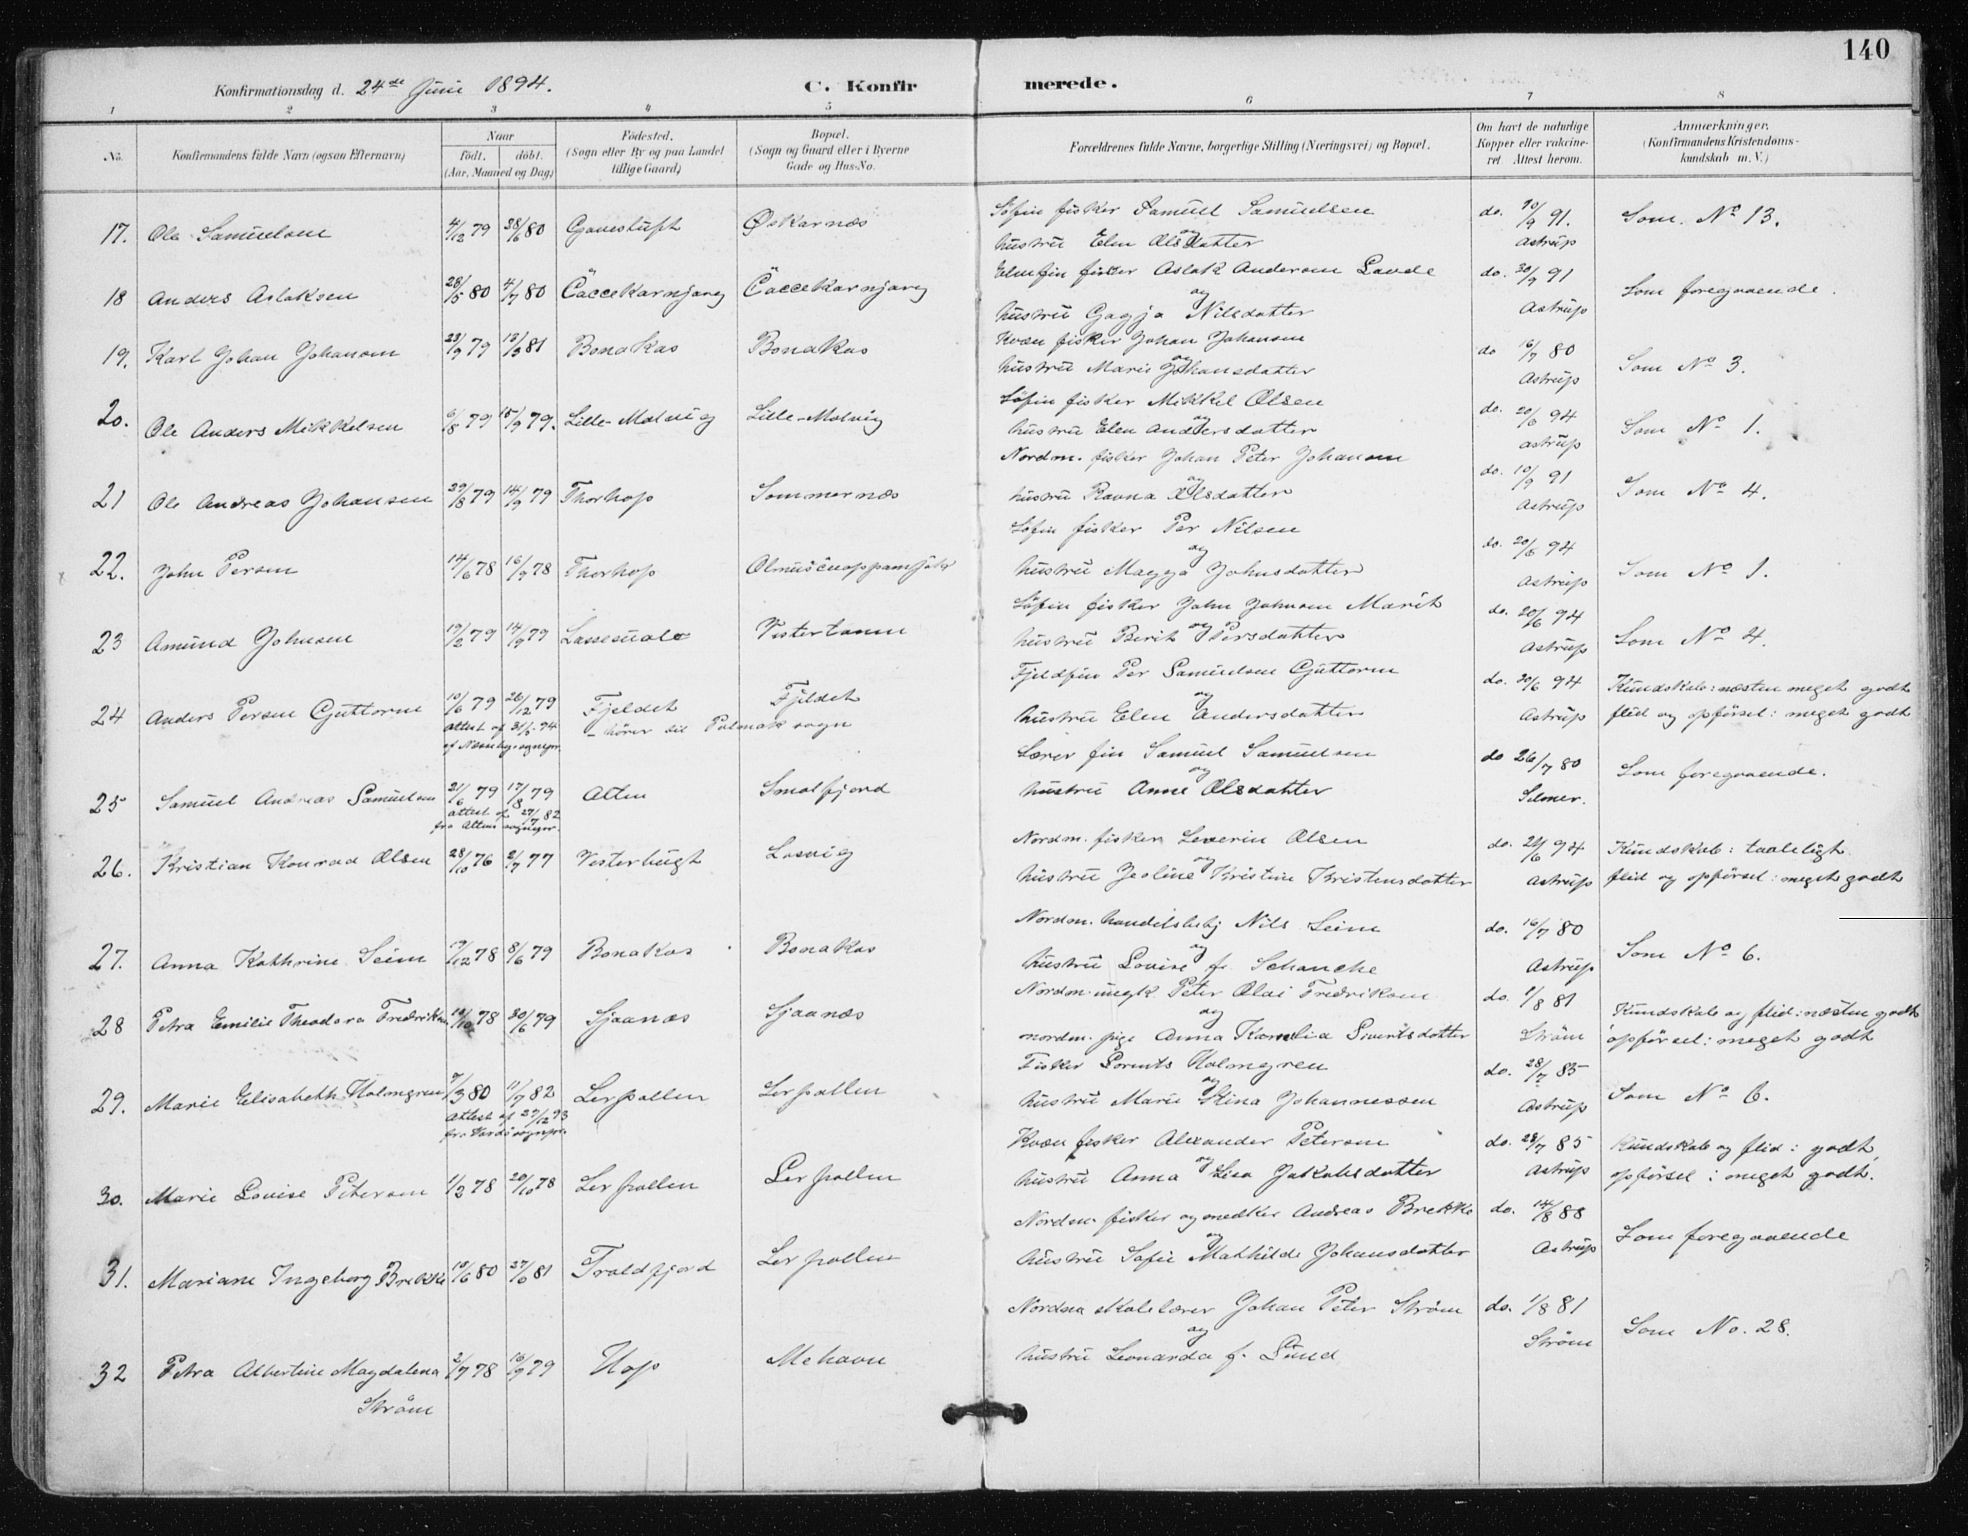 140
Konfirmationsdag d. 24de Juni 1894. C. Konfirmerede.
1 2 3 4 5 6 7 8
No. Konfirmandens fulde Navn (ogsaa Efternavn) Naar födt. döbt. (Aar, Maaned og Dag) Födested. (Sogn eller By og paa Landet tillige Gaard) Bopæl. (Sogn og Gaard eller i Byerne Gade og Hus-No. Forældrenes fulde Navne, borgerlige Stilling (Næringsvei) og Bopæl. Om havt de naturlige Kopper eller vaccineret Attest herom. Anmærkninger. (Konfirmandens Kristendomskundskab m. V.)
17. Ole Samuelsen 4/12 79 28/6 80 Gavesluft Øskarnæs Söfin fisker Samuel Samuelsen do. 10/9 91. Som No 13.
og
hustru Elen Olsdatter Astrup
18 Anders Aslaksen 28/5 80 4/7 80 Čaccekarnjarg Čaccekarnjarg Elvefin fisker Aslak Andersen Lavde do. 30/9 91 Som foregaaende.
og
hustru Gagja Nilsdatter Astrup
19. Karl Johan Johansen 23/9 79 13/3 81 Bonakas Bonakas Kvæn fisker Johan Johansen do 16/7 80 Som No 3.
og
hustru Marie Johansdatter Astrup
20. Ole Anders Mikkelsen 6/8 79 15/9 79. Lille-Molvig Lille-Molvig Söfin fisker Mikkel Olsen do. 20/6 94 Som No 1.
og
hustru Elen Andersdatter Astrup
21 Ole Andreas Johansen 29/8 79 14/9 79 Thorhop Sommernæs Nordm. fisker Johan Peter Johansen do. 10/9 91 Som No 4.
og
hustru Ravna Olsdatter Astrup
22. John Persen 14/6 78 16/9 78 Thorhop Söfin fisker Per Nilsen do. 20/6 94 Som No 1.
og
hustru Magga Johnsdatter Astrup
23 Amund Johnsen 19/2 79 14/9 79 Vestertanen Söfin fisker John Johnsen Marit do. 20/6 94 Som No 4.
og
hustru Berit Persdatter Astrup
24 Anders Persen Guttorm 10/6 79 26/12 79 Fjeldet Fjeldet Fjeldfin Per Samuelsen Guttorm do. 20/6 94 Kundskab: næsten meget godt
attest af 31/5 94 - hører til Polmak sogn og
af Næsseby sognepr. hustru Elen Andersdatter Astrup flid og opførsel: meget godt
25 Samuel Andreas Samuelsen 21/6 79 17/8 79 Alten Smalfjord Lærer fin Samuel Samuelsen do 26/7 80 Som foregaaende.
attest af 27/7 82 og
fra Altens sognepr. hustru Anne Olsdatter Selmer.
26. Kristian Konrad Olsen 28/10 76 2/7 77 Vesterbugt Losvig Nordm. fisker Severin Olsen do. 24/6 94 Kundskab: taaleligt
og
hustru Jeoline Kristine Kristensdatter Astrup flid og opførsel: meget godt
27. Anna Kathrine Seim 19/12 78 8/6 79 Bonakas Bonakas Nordm. handelsbetj Nils Seim do. 16/7 80 Som No 6.
og
hustru Lovise f. Schanche Astrup
28 Petra Emilie Theodora Fredriksen 10/10 78 30/6 79 Sjaanæs Sjaanæs Nordm. ungk. Peter Olai Fredriksen do. 1/8 81 Kundskab og flid: næsten godt
og
nordm. pige Anna Kornelia Sivertsdatter Ström opførsel: meget godt
29. Marie Elisabeth Holmgren 7/3 80 11/7 82 Lerpollen Lerpollen Fisker Lorents Holmgren do. 28/7 85 Som No 6.
attest af 27/12 93 og
fra Vardö sognepr. hustru Marie Stina Johannessen Astrup
30. Marie Lovise Petersen 1/2 78 20/10 78 Lerpollen Lerpollen Kvæn fisker Alexander Petersen do. 28/7 85 Kundskab og flid: godt,
og
hustru Anna Lisa Jakobsdatter Astrup opførsel: meget godt.
31. Mariane Ingeborg Brekke 10/6 80 27/6 81 Troldfjord Lerpollen Nordm. fisker og snedker Andreas Brekke do. 14/8 88 Som foregaaende
og
hustru Sofie Mathilde Johansdatter Astrup
32 Petra Albertine Magdalena Ström 2/7 78 16/9 79 Hop Mehavn Nordm skolelærer Johan Peter Ström do. 1/8 81 Som No. 28.
og
hustru Leonarda f. Lund Ström